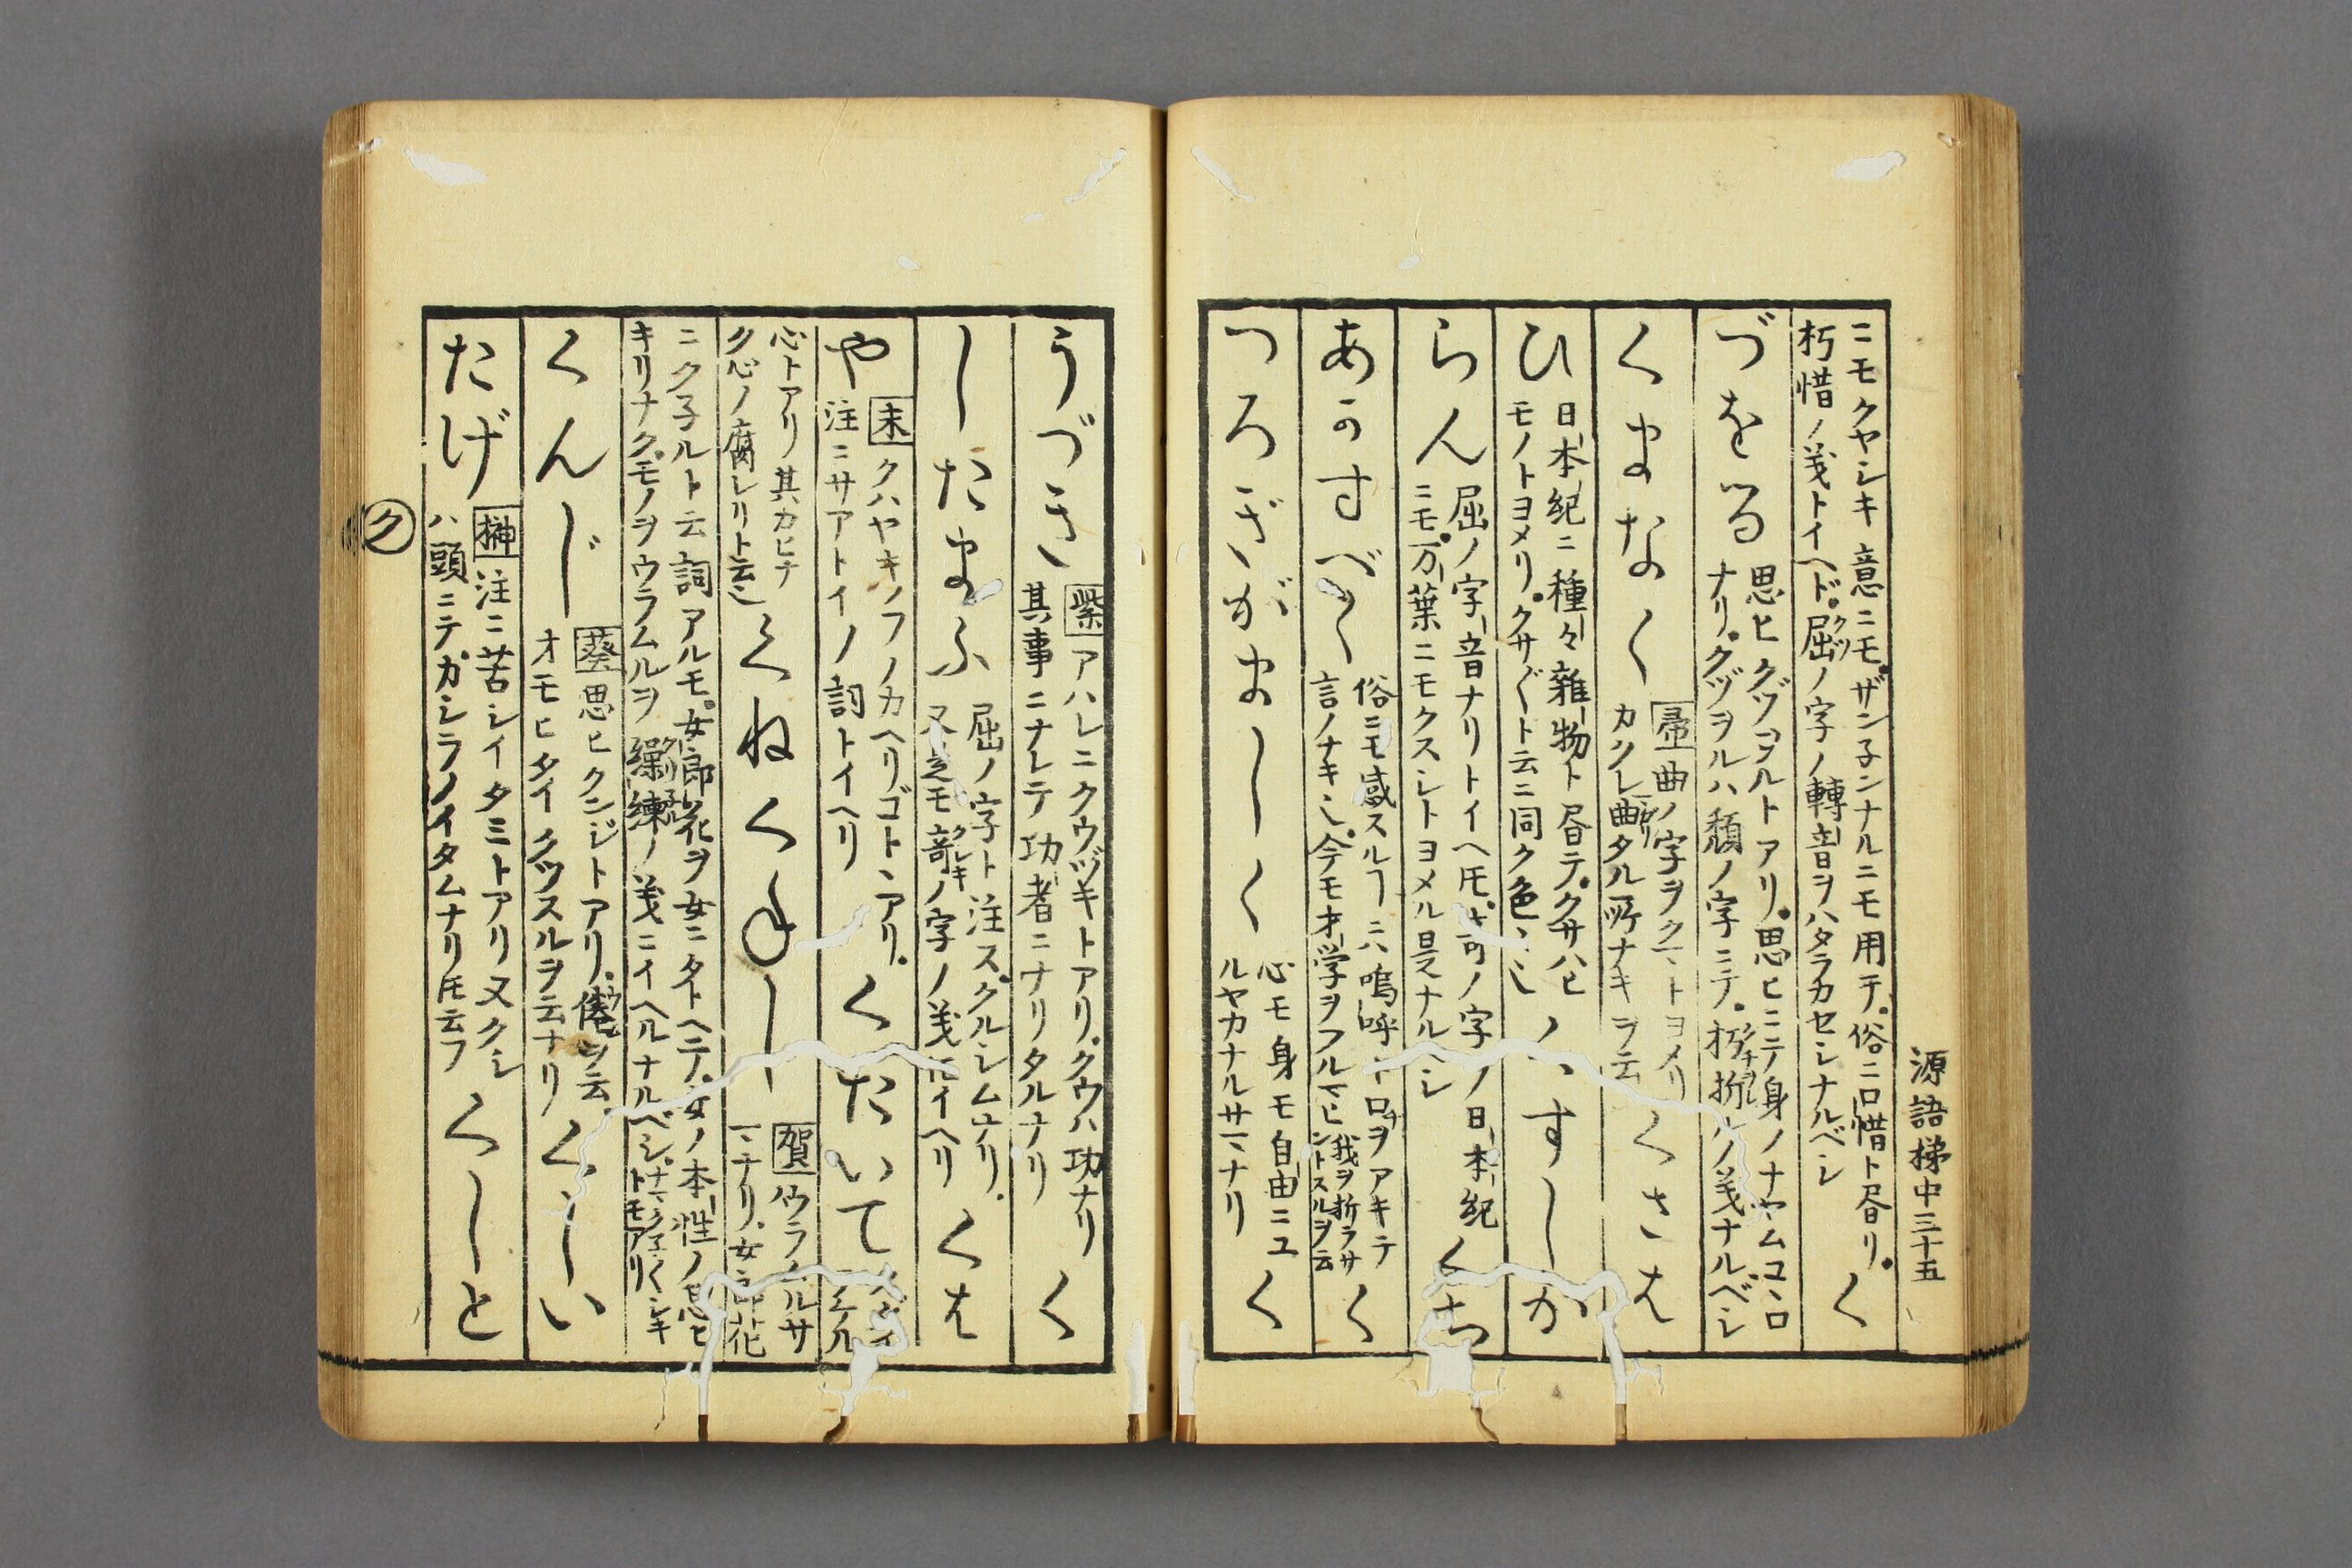 源語梯中三十五
ニモクヤシキ意ニモ。ザン子ンナルニモ用テ。俗ニ口惜ト昏リ。
朽惜ノ義トイヘド。屈ノ字ノ轉音ヲハタラカセシナルベシ
く
づをるゝ
思ヒクヅヲルトアリ。思ヒニテ身ノナヤムコヽロ
ナリ。クヅヲルハ頽ノ字ニテ。朽折ルノ義ナルベシ
くまなく
曲ノ字ヲクマトヨメリ
カクレ曲タル所ナキヲ云
くさは
ひ
日本紀ニ種々雜物ト昏テ。クサハヒ
モノトヨメリ。クサ〴〵ト云ニ同ク色〻
くすしか
らん
屈ノ字音ナリトイヘ𪜈。ノ字ノ日本紀
ニモ。万葉ニモクスシトヨメル是ナルベシ
くち
あかすべく
俗ニモ感スルヿニハ嗚呼ト口ヲアキテ
言ノナキ也。今モ才学ヲフルマヒ
我ヲ折ラサ
ントスルヲ云
く
つろぎがましく
心モ身モ自由ニユ
ルヤカナルサマナリ
く
うづき
紫 アハレニクウヅキトアリ。クウハ功ナリ
其事ニナレテ功者ニナリタルナリ
く
したまふ
屈ノ字ト注ス。クルシムナリ。
ノ字ノ義𪜈イヘリ
くは
や
末 クハヤキノフノカヘリゴトヽアリ。
注ニサアトイノ詞トイヘリ
くたいて
心トアリ其カヒナ
ク心ノ腐レリト云也
くねくねし
賀 ウラムルサ
マナリ。女郎花
ニク子ルト云詞アルモ。女郎花ヲ女ニタトヘテ。女ノ本性ノ思ヒ
キリナク。モノヲウラムルヲ繰練ノ義ニイヘルナルベシ。
トモアリ
くんじ
葵 思ヒクンジトアリ。倦ヲ云。
オモヒタイクツスルヲ云ナリ
くしい
たげ
榊 注ニ苦シイタミトアリ又クシ
ハ頭ニテ。カシラノイタムナリ𪜈云フ
くしと
ク